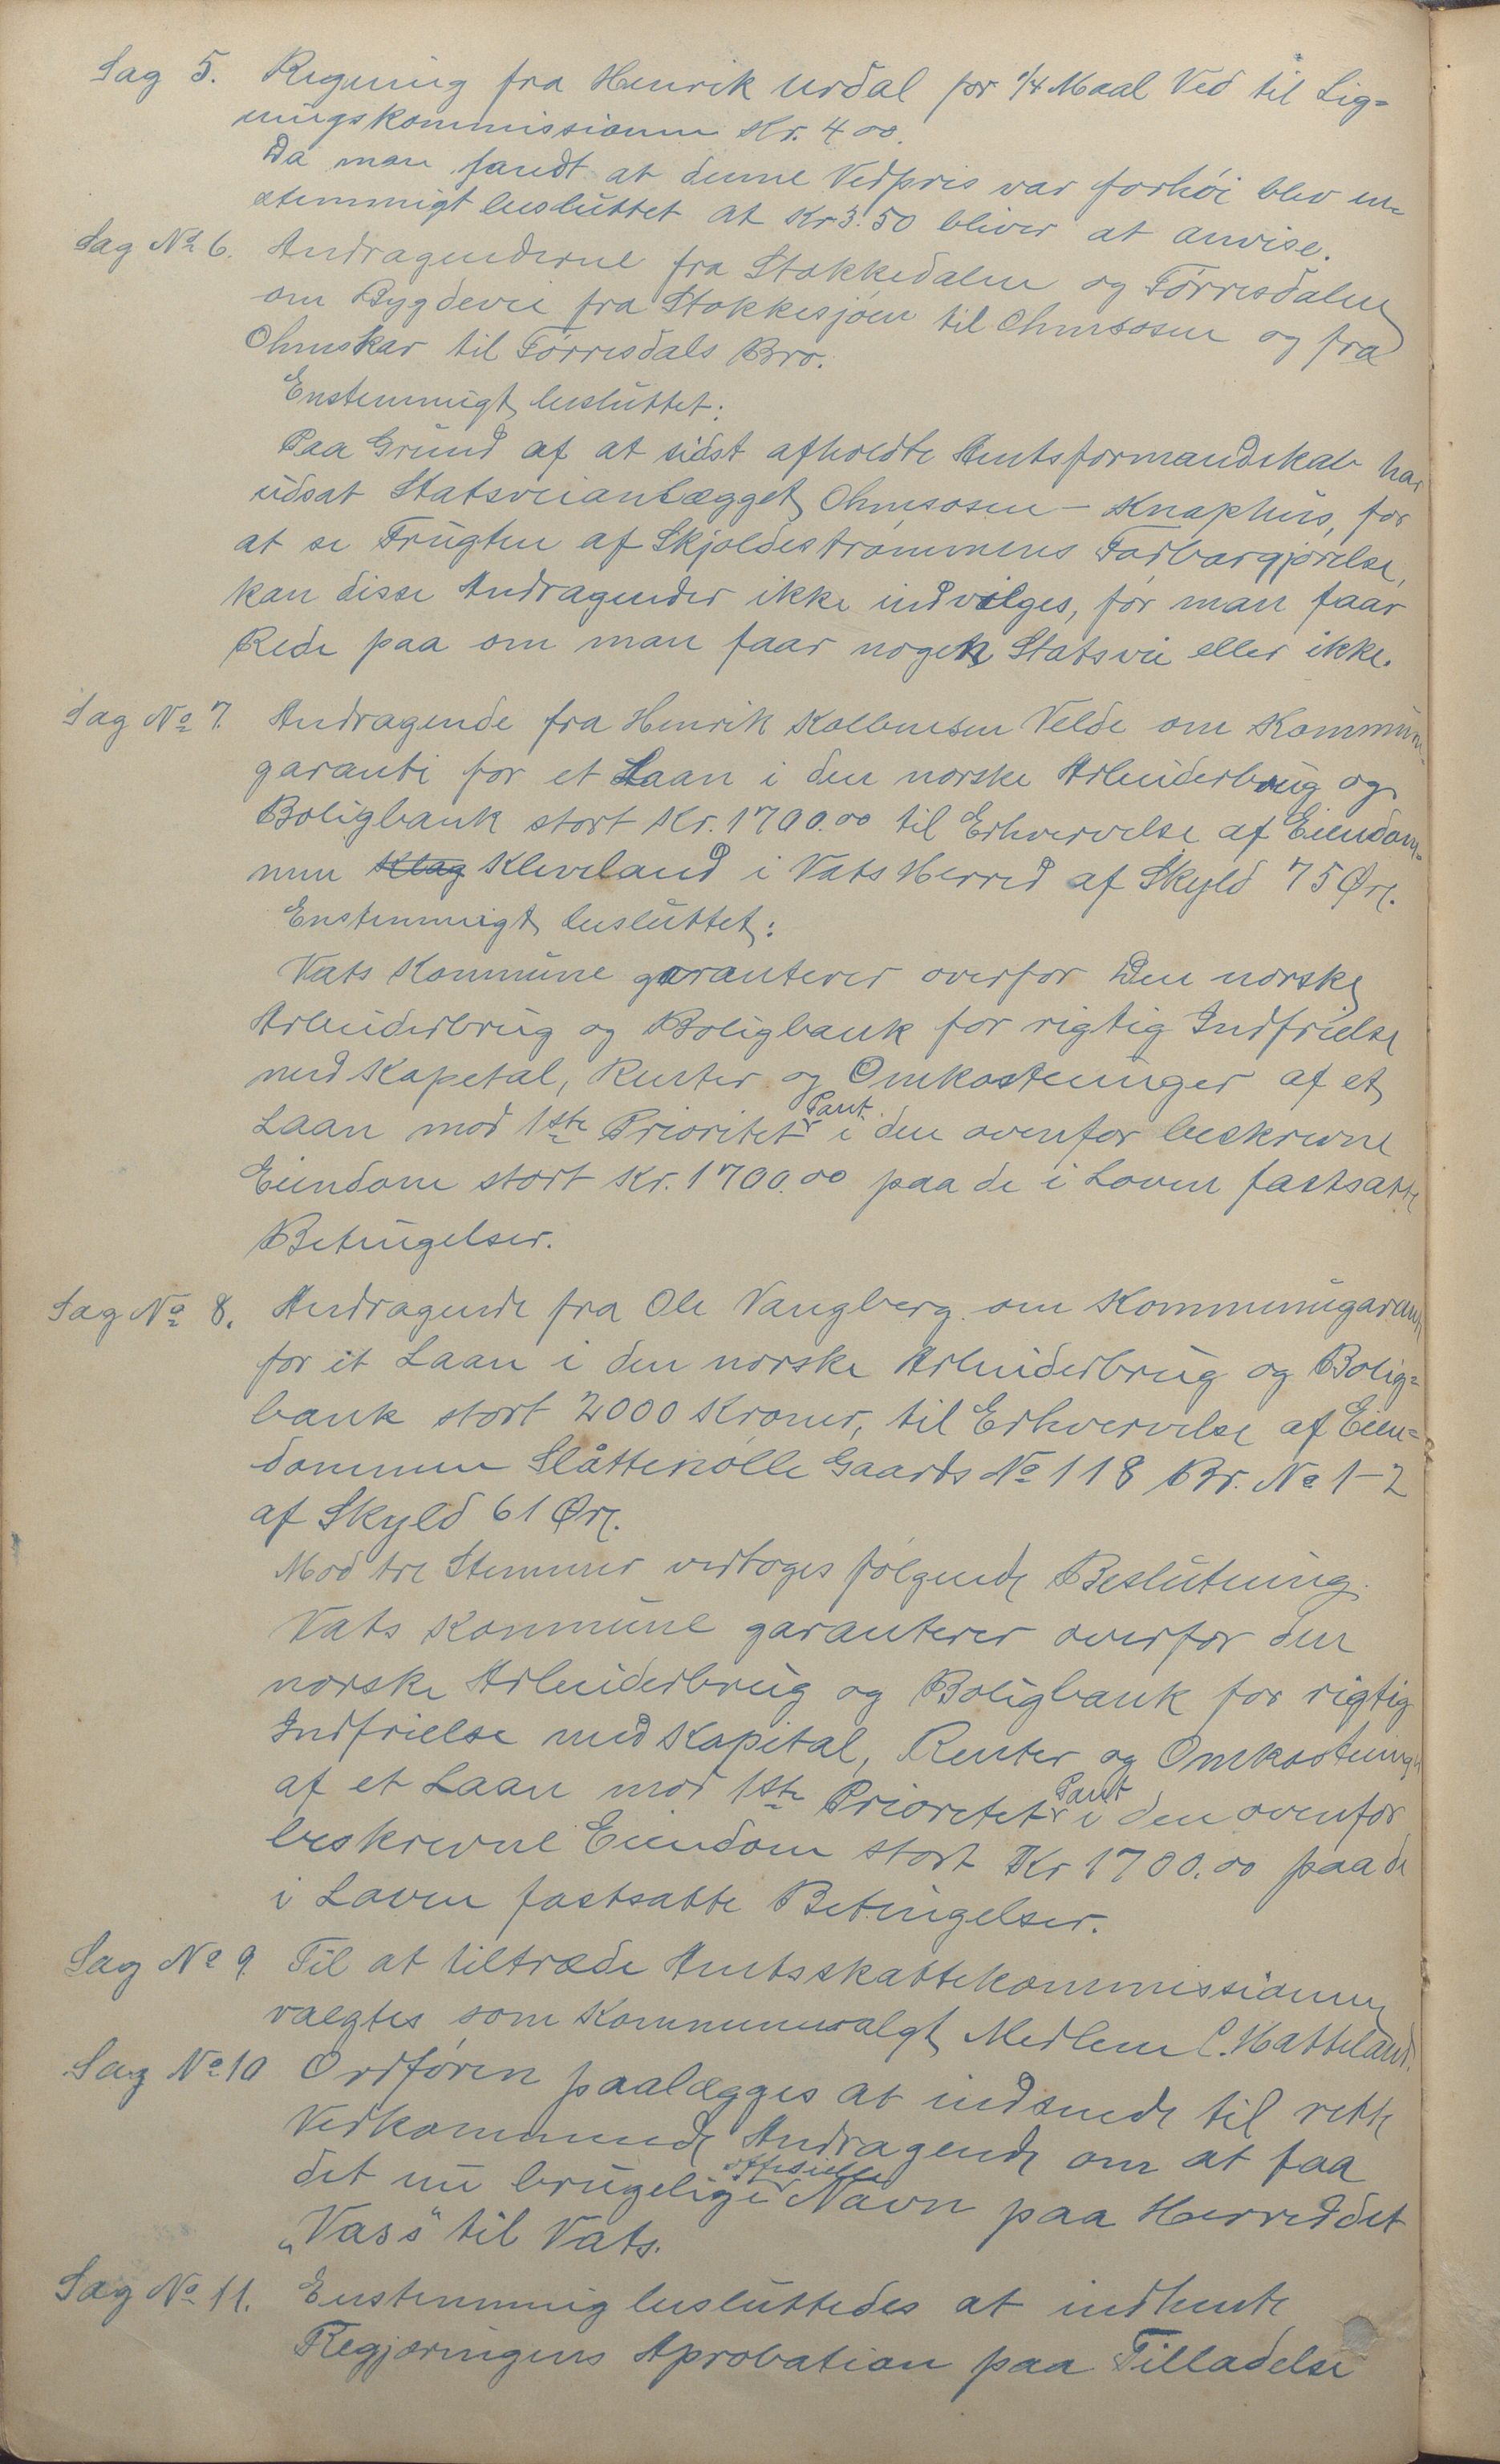 Sag 5. Regning fra Henrik Urdal for 1/4 Maal Ved til Lig=
ningskommissionen Kr. 4 00.
Da man fandt at denne Vedpris var forhøi blev en=
stemmigt besluttet at Kr 3.50 bliver at anvise.
Sag No 6. Andragenderne fra Stokkedalen og Førresdalen
om Bygdevei fra Stokkesjøen til Ølmsosen og fra
Ølmskar til Førresdals Bro.
Enstemmigt besluttet:
Paa Grund af at sidst afholdte Amtsformandskab har
udsat Statsveianlægget Ølmsosen - Knaphus, for
at se Frugten af Skjoldestrømmens Farbargjørelse,
kan disse Andragender ikke indvilges, før man faar
Rede paa om man faar nogen Statsvei eller ikke.
Sag No 7. Andragende fra Henrik Kolbensen Velde om Kommune
garanti for et Laan i den norske Arbeiderbrug og
Boligbank stort Kr. 1700.00 til Erhvervelse af Eiendom=
men Klag Kleveland i Vats Herred af Skyld 75 Øre.
Enstemmigt besluttet:
Vats Kommune garanterer overfor Den norske
Arbeiderbrug og Boligbank for rigtig Indfrielse
med Kapetal, Renter og Omkostninger af et
Laan mod 1ste Prioritets Pant i den ovenfor beskrevne
Eiendom stort Kr. 1700.00 paa de i Loven fastsatte
Betingelser.
Sag No 8. Andragende fra Ole Vangberg om Kommunegaranti
for et Laan i den norske Arbeiderbrug og Bolig=
bank stort 2000 Kroner, til Erhvervelse af Eien=
dommen Slåttenølle Gaards No 118 Br. No 1-2
af Skyld 61 Øre.
Mod tre Stemmer vedtoges følgende Beslutning.
Vats Kommune garanterer overfor den
norske Arbeiderbrug og Boligbank for rigtig
Indfrielse med Kapital, Renter og Omkostninger
af et Laan mod 1ste Prioretets Pant i den ovenfor
beskrevne Eiendom stort Kr 1700.00 paa de
i Loven fastsatte Betingelser.
Sag No 9. Til at tiltræde Amtsskattekommissionen
valgtes som Kommunevalgt Medlem C. Hatteland.
Sag No 10 Ordføren paalægges at indsende til rette
Vedkommende Andragende om at faa
det nu brugelige offisielle Navn paa Herreddet
„Vass" til Vats.
Sag No 11. Enstemmig besluttedes at indhente
Regjeringens Aprobation paa Tilladelse